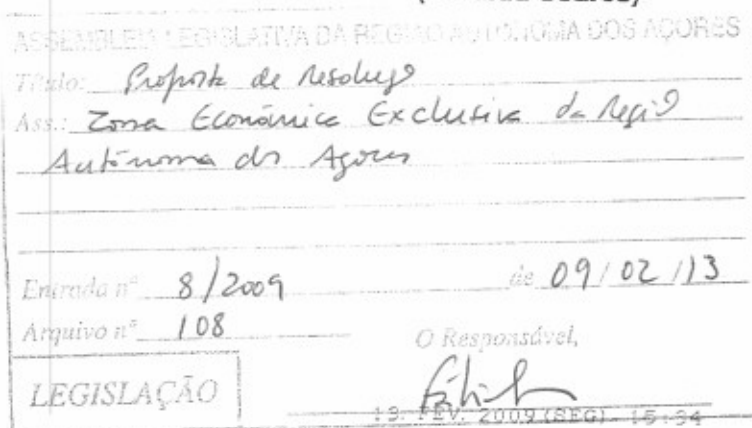 Soares)
ASSEMBLEIA LEGISLATIVA DA REGIÃO AUTÓNOMA DOS AÇORES
Título: Proposta de Resolução
Ass.: Zona Económica Exclusiva da Região
Autónoma dos Açores
Entrada nº 8/2009 de 09/02/13
Arquivo nº 108
O Responsável,
LEGISLAÇÃO
13. FEV. 2009 (SEG) 15:34